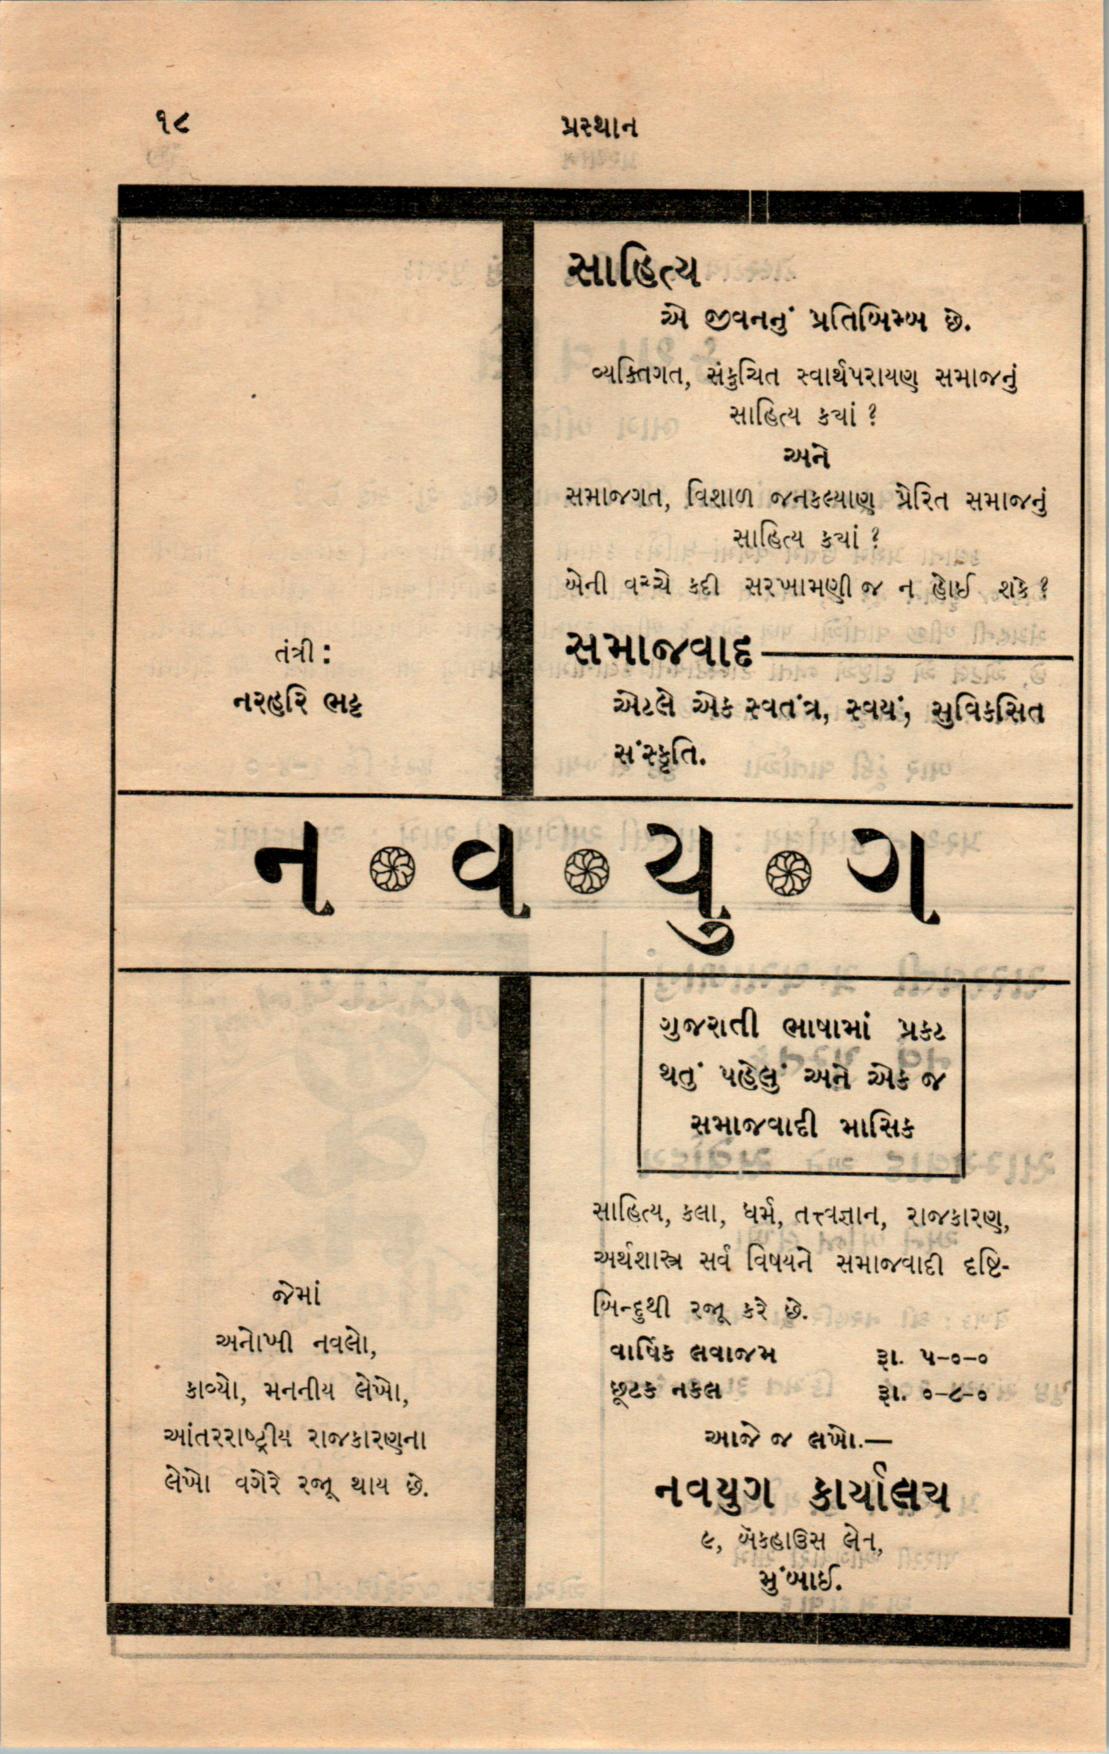 ૧૮
પ્રસ્થાન
સાહિત્ય
એ જીવનનું પ્રતિબિમ્બ છે.
વ્યક્તિગત, સંકુચિત સ્વાર્થપરાયણ સમાજનું
સાહિત્ય ક્યાં ?
અને
સમાજગત, વિશાળ જનકલ્યાણ પ્રેરિત સમાજનું
સાહિત્ય ક્યાં ?
બેની વચ્ચે કદી સરખામણી જ ન હોઈ શકે ?
તંત્રી :
નરહરિ ભટ્ટ
સમાજવાદ
એટલે એક સ્વતંત્ર, સ્વયં, સુવિકસિત
સંસ્કૃતિ.
ન વ યુ ગ
ગુજરાતી ભાષામાં પ્રકટ
થતું પહેલું અને એક જ
સમાજવાદી માસિક
સાહિત્ય, કલા, ધર્મ, તત્ત્વજ્ઞાન, રાજકારણ,
અર્થશાસ્ત્ર સર્વ વિષયને સમાજવાદી દૃષ્ટિ-
બિન્દુથી રજૂ કરે છે.
જેમાં
અનોખી નવલો,
કાવ્યો, મનનીય લેખો,
આંતરરાષ્ટ્રીય રાજકારણના
લેખો વગેરે રજૂ થાય છે.
વાર્ષિક લવાજમ રૂા. ૫-૦-૦
છૂટક નકલ રૂા. ૦-૮-૦
આજે જ લખો.—
નવયુગ કાર્યાલય
૯, બૅકહાઉસ લેન,
મુંબાઈ.